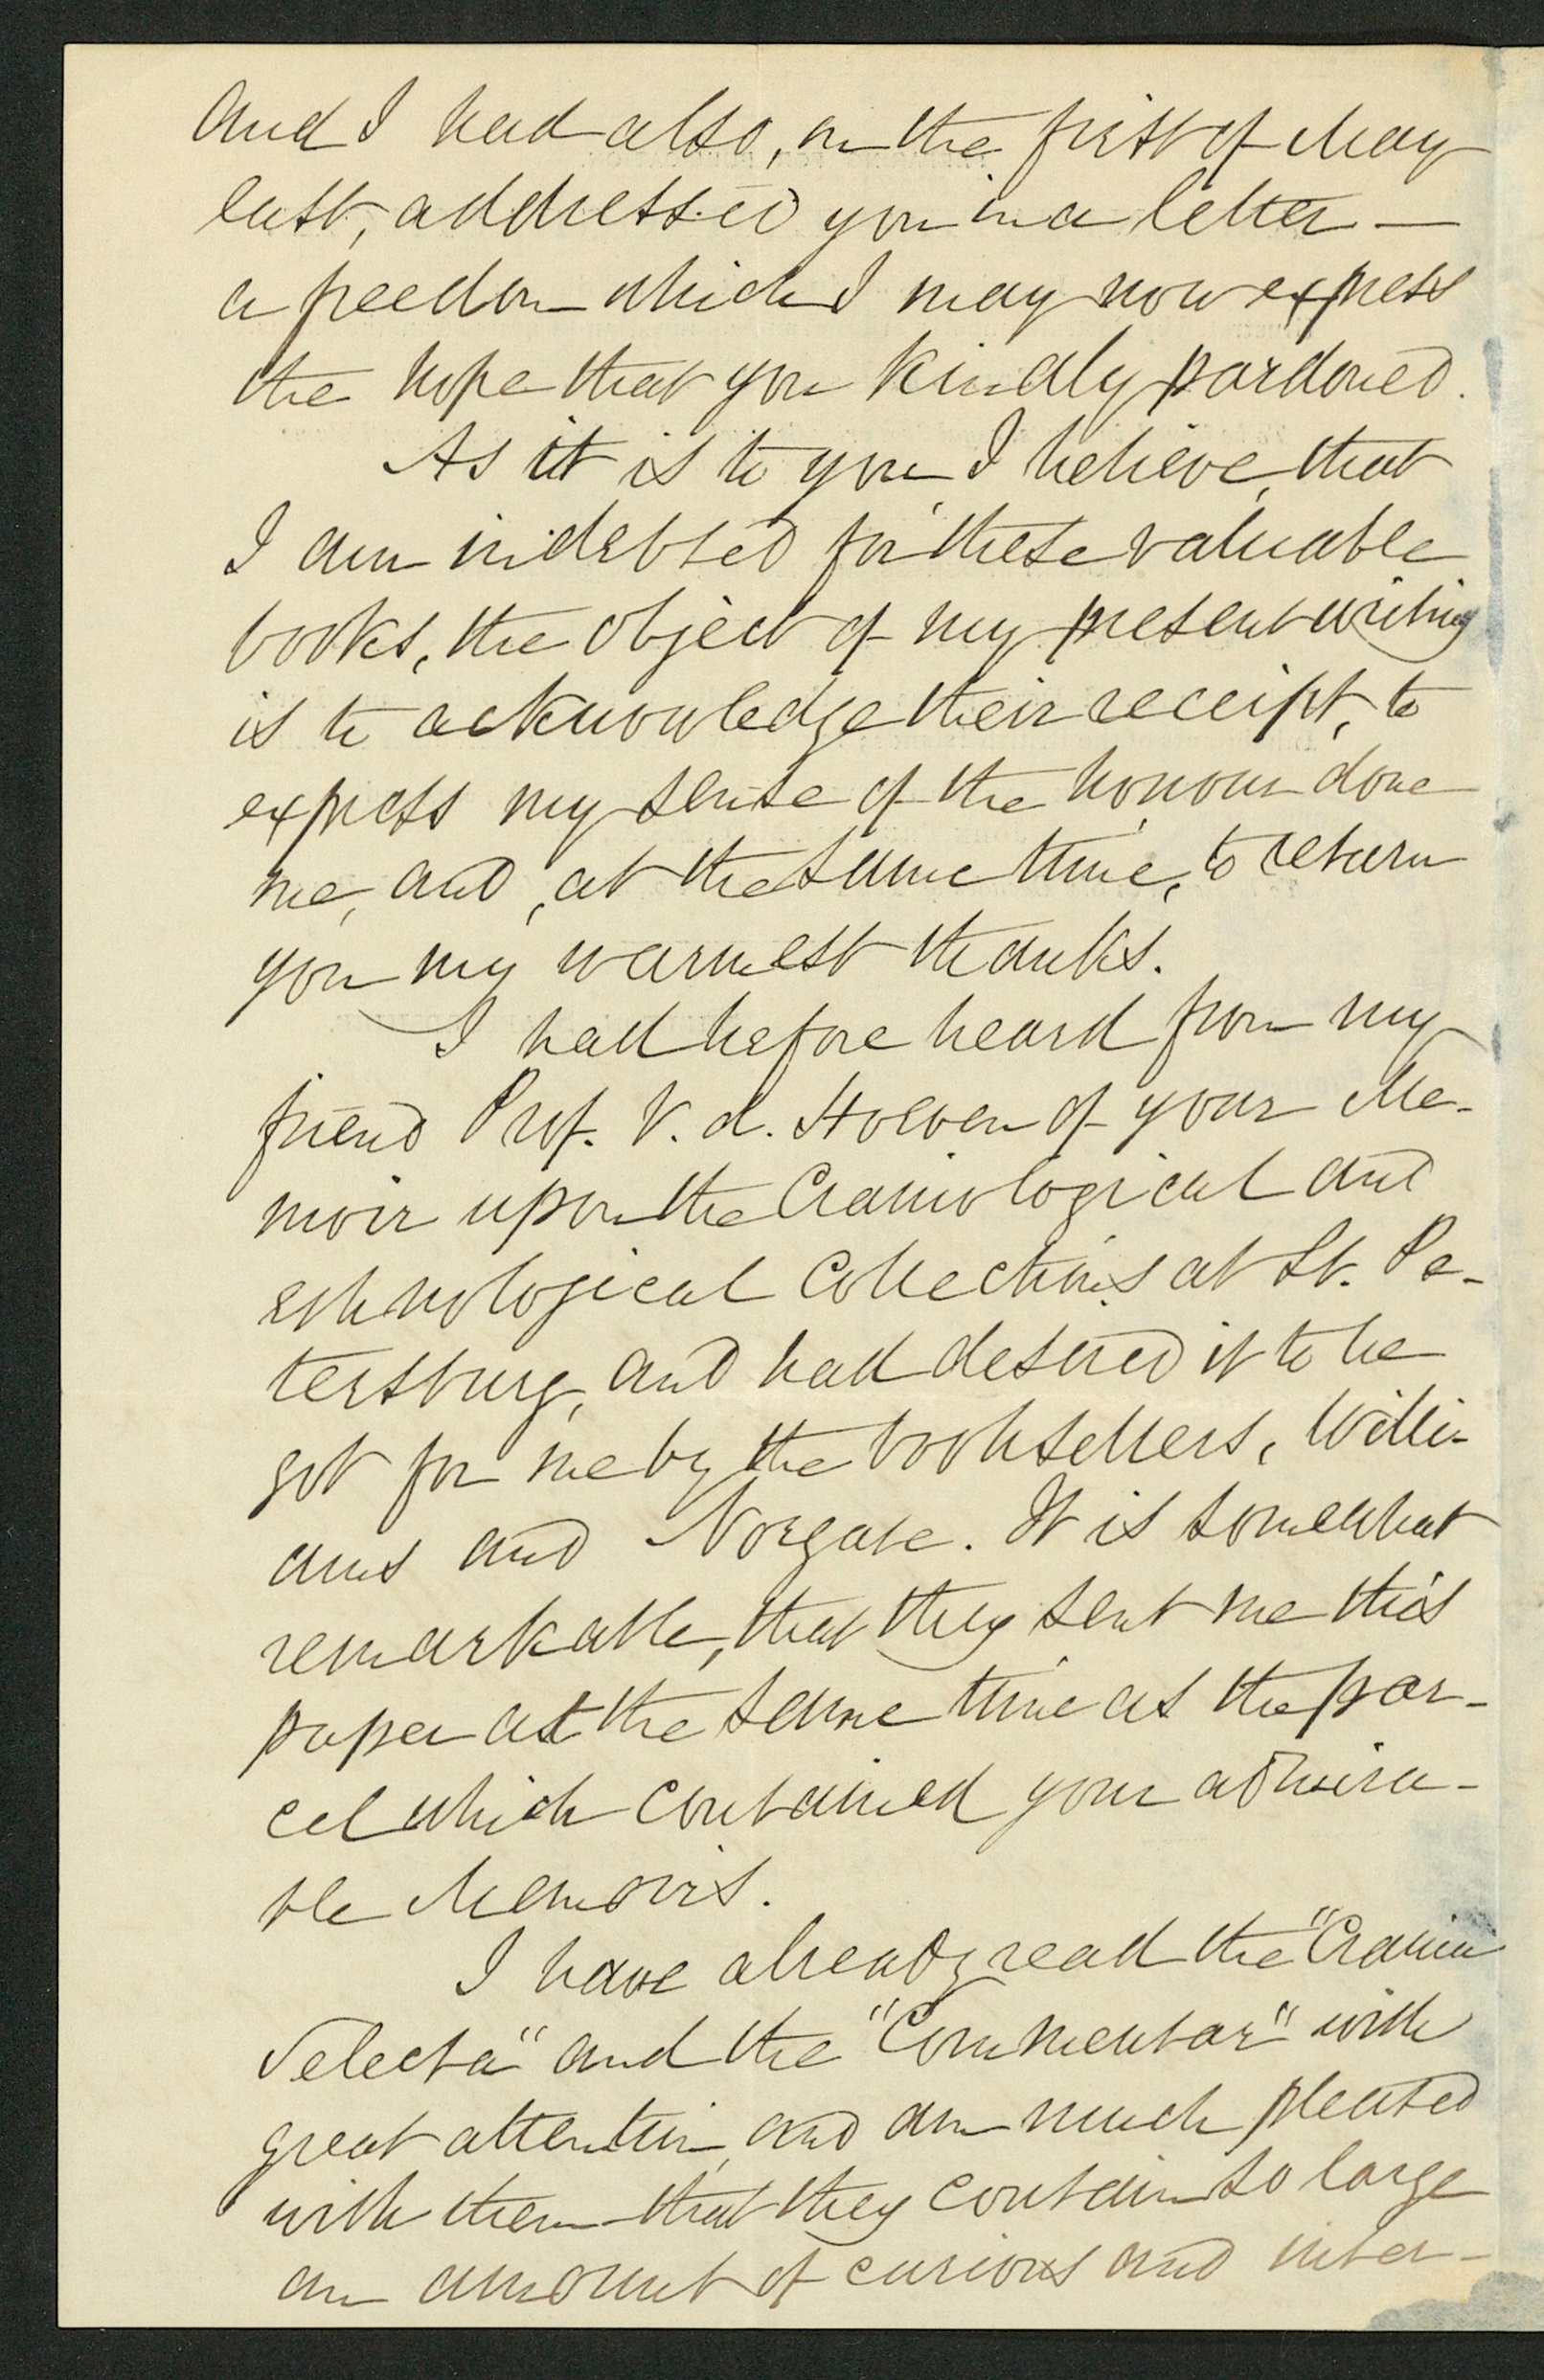 And I had also, on the first of May
last, addressed you in a letter —
a freedom which I may now express
the hope that you kindly pardoned.
As it is to you, I believe, that
I am indebted for these valuable
books, the object of my present writing
is to acknowledge their receipt, to
express my sense of the honour done
me, and, at the same time, to return
you my warmest thanks.
I had before heard from my
friend Prof. V. d. Hoeven of your Me-
moir upon the Craniological and
ethnological Collections at St. Pe-
tersburg, and had desired it to be
got for me by the booksellers, Willi-
ams and Norgate. It is somewhat
remarkable, that they sent me this
paper at the same time as the par-
cel which contained your admira-
ble Memoirs.
I have already read the "Crania
Selecta" and the "Commentar" with
great attention, and am much pleased
with them that they contain so large
an amount of curious and inter-